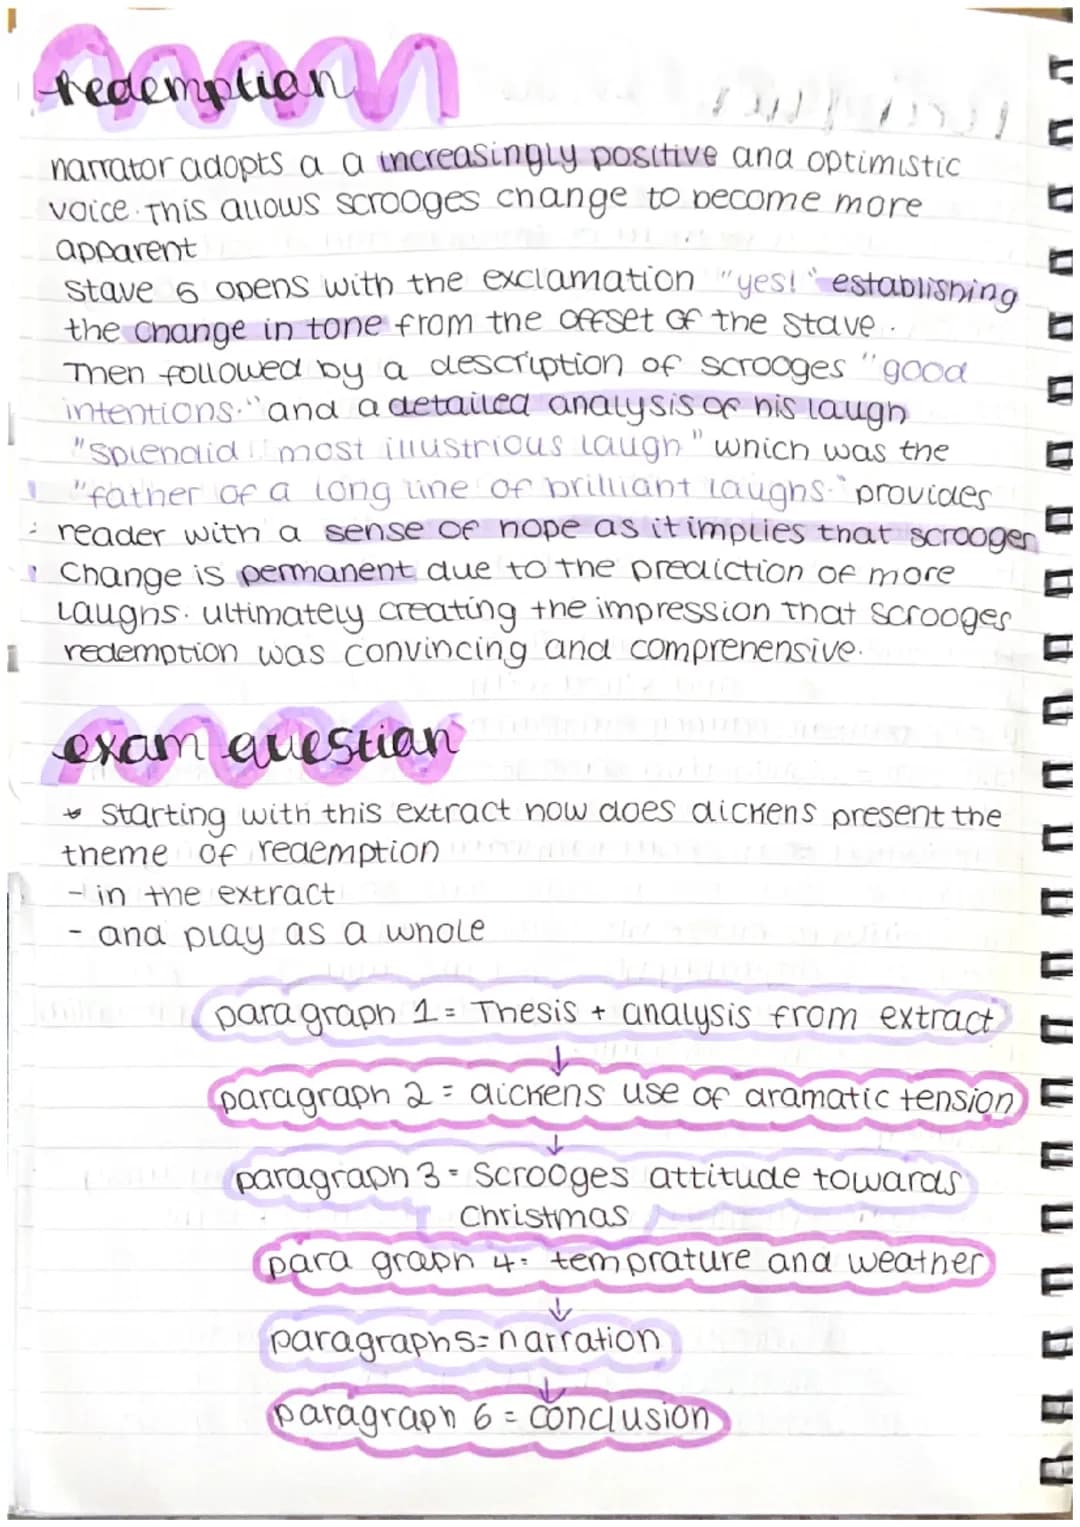 redemption
narrator adopts a a increasingly positive and optimistic
voice. This allows scrooges change to become more
apparent
Stave 5 opens with the exclamation "yes!" establishing
the change in tone from the offset of the stave.
Then followed by a description of scrooges "good
intentions." and a detailed analysis of his laugh
"splendid most illustrious laugh" which was the
"father of a long line of brilliant laughs." provides
reader with a sense of hope as it implies that scrooges
Change is permanent due to the prediction of more
laughs. ultimately creating the impression that scrooges
redemption was convincing and comprehensive.
exam question
* Starting with this extract how does dickens present the
theme of redemption
- in the extract
- and play as a whole
paragraph 1 = Thesis + analysis from extract
↓
paragraph 2 = dickens use of dramatic tension
↓
paragraph 3 = Scrooges attitude towards
Christmas
para graph 4 = temprature and weather
↓
paragraph 5 = narration
↓
paragraph 6 = conclusion